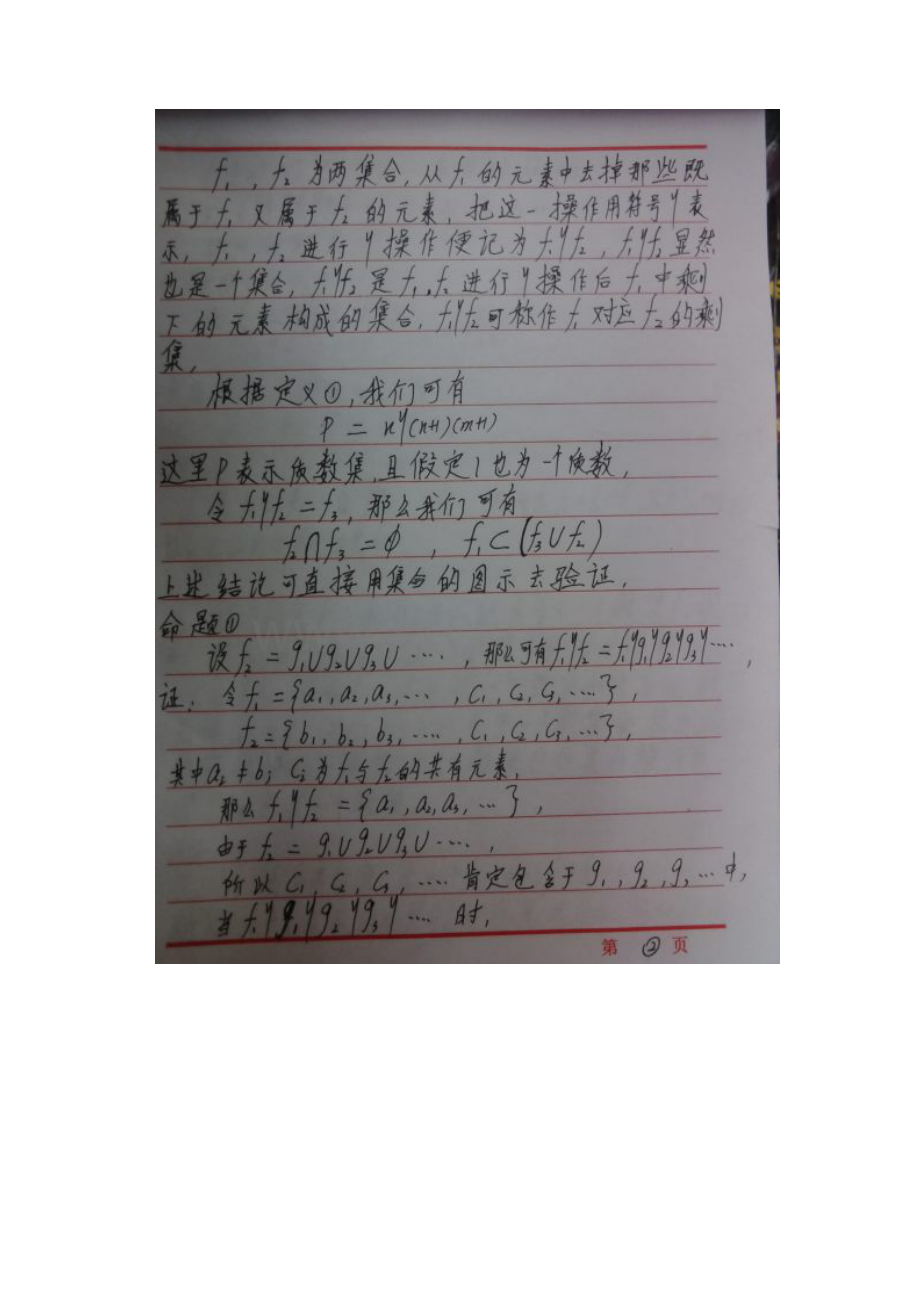 f₁，f₂ 为两集合，从 f₁ 的元素中去掉那些既
属于 f₁ 又属于 f₂ 的元素，把这一操作用符号 y 表
示，f₁，f₂ 进行 y 操作便记为 f₁ʸf₂，f₁ʸf₂ 显然
也是一个集合，f₁ʸf₂ 是 f₁，f₂ 进行 y 操作后 f₁ 中剩
下的元素构成的集合，f₁ʸf₂ 可称作 f₁ 对应 f₂ 的剩
集，
根据定义①，我们可有
P = nʸ(n+1)(m+1)
这里 P 表示质数集，且假定 1 也为一个质数，
令 f₁ʸf₂ = f₃，那么我们可有
f₂∩f₃ = ∅ ， f₁⊂(f₃∪f₂)
上述结论可直接用集合的图示去验证，
命题①
设 f₂ = g₁∪g₂∪g₃∪ ····，那么可有 f₁ʸf₂ = f₁ʸg₁ʸg₂ʸg₃ʸ····，
证：令 f₁ = {a₁, a₂, a₃, ···, c₁, c₂, c₃, ····}，
f₂ = {b₁, b₂, b₃, ····, c₁, c₂, c₃, ···}，
其中 a₂ ≠ bⱼ cᵢ 为 f₁ 与 f₂ 的共有元素，
那么 f₁ʸf₂ = {a₁, a₂, a₃, ···}，
由于 f₂ = g₁∪g₂∪g₃∪ ····，
所以 c₁, c₂, c₃, ···· 肯定包含于 g₁, g₂, g₃ ··· 中，
当 f₁ʸg₁ʸg₂ʸg₃ʸ ···· 时，
第 ② 页